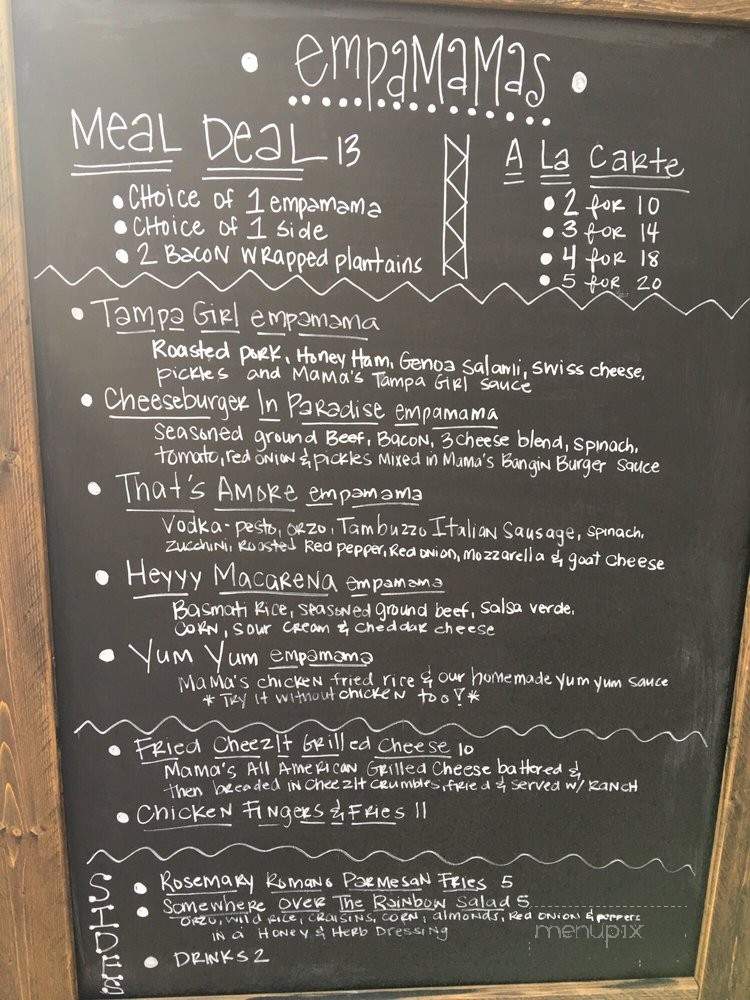 • empamamas •
Meal Deal 13
• Choice of 1 empamama
• Choice of 1 side
• 2 Bacon wrapped plantains
A La Carte
• 2 for 10
• 3 for 14
• 4 for 18
• 5 for 20
• Tampa Girl empamama
Roasted pork, Honey Ham, Genoa Salami, Swiss cheese,
pickles and Mama's Tampa Girl sauce
• Cheeseburger In Paradise empamama
Seasoned ground Beef, Bacon, 3 cheese blend, Spinach,
tomato, red onion & pickles mixed in Mama's Bangin Burger sauce
• That's Amore empamama
Vodka-pesto, orzo, Tambuzzo Italian Sausage, Spinach,
zucchini, Roasted Red pepper, Red onion, mozzarella & goat cheese
• Heyyy Macarena empamama
Basmati Rice, seasoned ground beef, Salsa verde,
corn, sour cream & cheddar cheese
• Yum Yum empamama
Mama's chicken fried rice & our homemade yum yum sauce
* Try it without chicken too! *
• Fried CheezIt Grilled Cheese 10
Mama's All American Grilled Cheese battered &
then breaded in CheezIt crumbles, fried & served w/ Ranch
• Chicken Fingers & Fries 11
SIDES
• Rosemary Romano Parmesan Fries 5
• Somewhere over The Rainbow Salad 5
orzo, wild rice, craisins, corn, almonds, Red onion & peppers
in a Honey & Herb Dressing
• Drinks 2
menupix